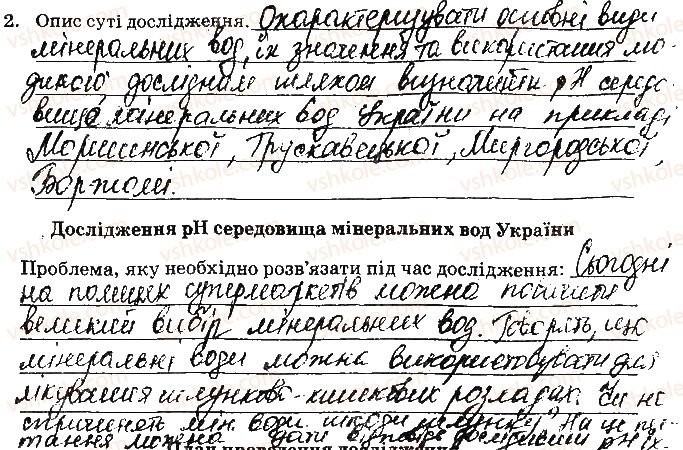 2. Опис суті дослідження. Охарактеризувати основні види
мінеральних вод, їх значення та використання
дослідним шляхом визначити pH середо-
вища мінеральних вод України на прикладі
Моршинської, Трускавецької, Миргородської,
Боржомі.
Дослідження pH середовища мінеральних вод України
Проблема, яку необхідно розв'язати під час дослідження: Сьогодні
на полицях супермаркетів можна
великий вибір мінеральних вод. Говорять, що
мінеральні води можна використовувати для
лікування шлунково-кишкових розладах. Чи не
спричинять мін. води шкоди шлунку? На це пи-
тання можна дати відповідь pH їх